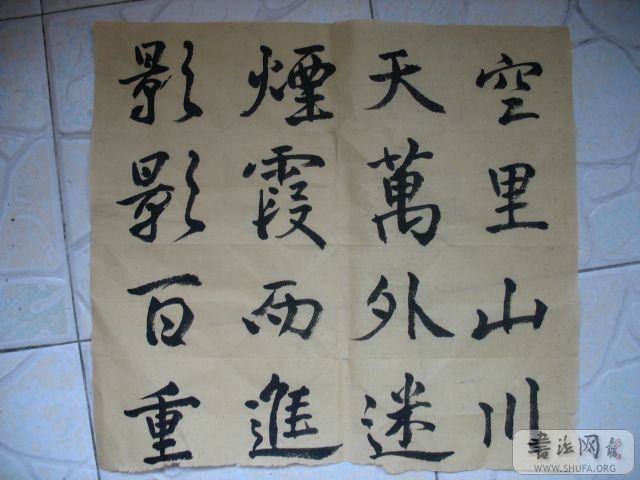 空里山川
天萬外迷
煙霞西進
影影百重
書法网
WWW.SHUFA.ORG